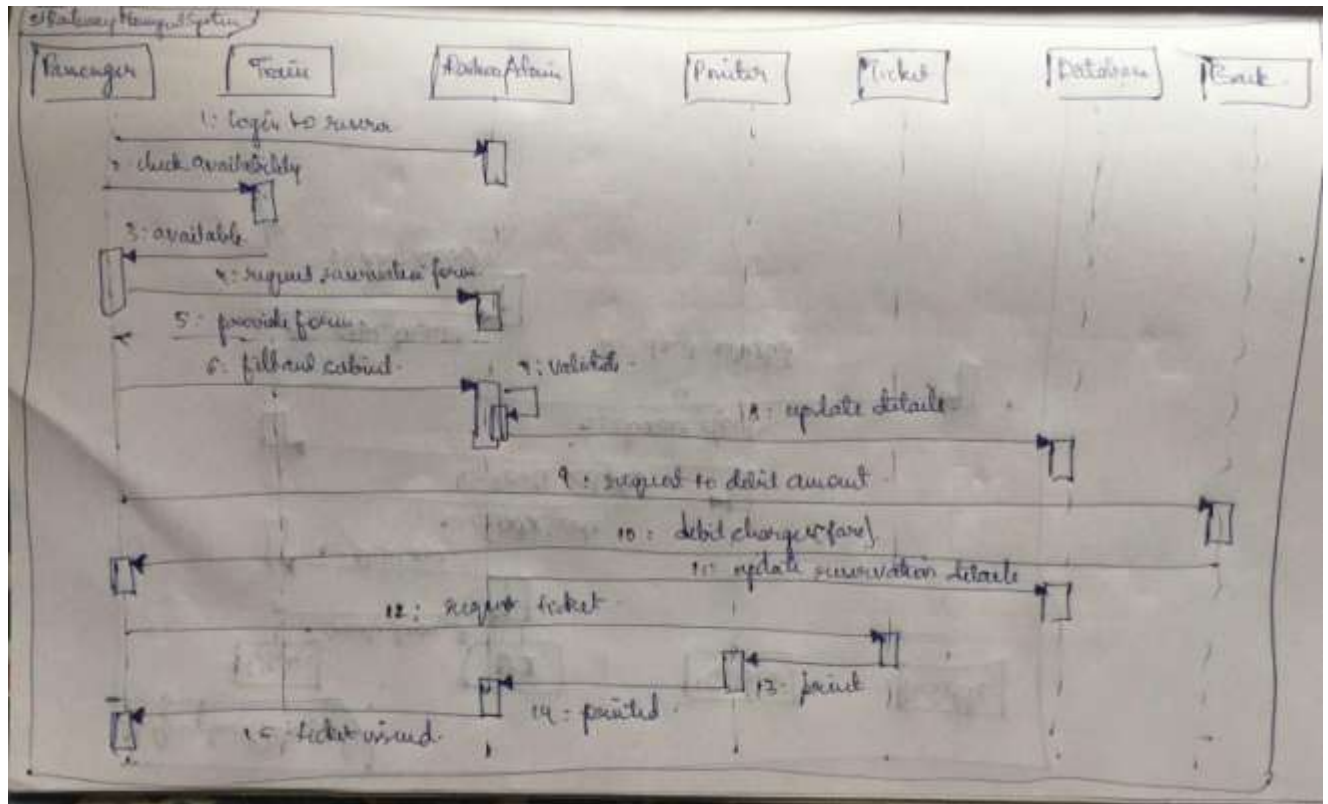 Passenger
Train
Admin
Printer
Ticket
Database
Bank
1: login to
check availability
3: available
4: request reservation form
5: provide form
6: fill and submit
7: validate
8: update details
9: request to debit amount
10: debit charges (fare)
11: update reservation details
12: request ticket
13: print
14: printed
15: ticket issued